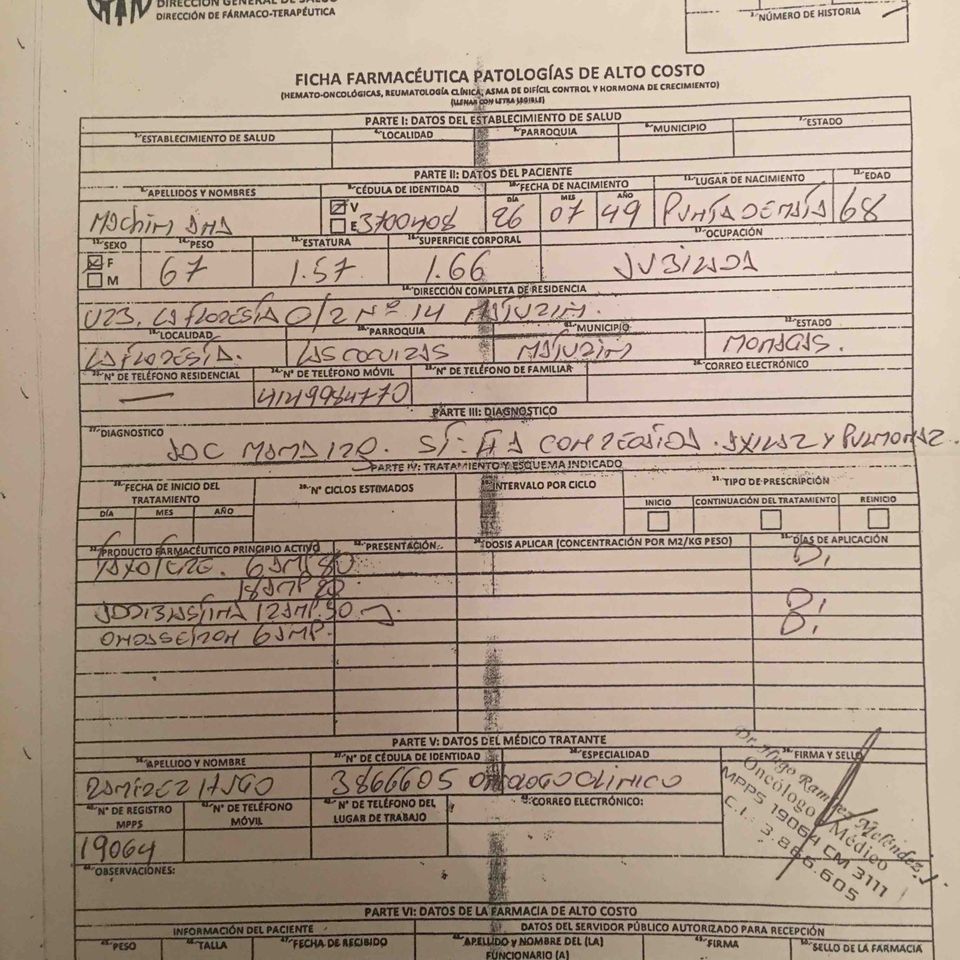 DIRECCIÓN GENERAL DE SALUD
DIRECCIÓN DE FÁRMACO-TERAPÉUTICA
NÚMERO DE HISTORIA
FICHA FARMACÉUTICA PATOLOGÍAS DE ALTO COSTO
(HEMATO-ONCOLÓGICAS, REUMATOLOGÍA CLÍNICA, ASMA DE DIFÍCIL CONTROL Y HORMONA DE CRECIMIENTO)
(LLENAR CON LETRA LEGIBLE)
PARTE I: DATOS DEL ESTABLECIMIENTO DE SALUD
ESTABLECIMIENTO DE SALUD LOCALIDAD PARROQUIA MUNICIPIO ESTADO
PARTE II: DATOS DEL PACIENTE
APELLIDOS Y NOMBRES CÉDULA DE IDENTIDAD FECHA DE NACIMIENTO LUGAR DE NACIMIENTO EDAD
V DÍA MES AÑO
MAChIM ANA E 3700408 26 07 49 PUNTA DE MATA 68
SEXO PESO ESTATURA SUPERFICIE CORPORAL OCUPACIÓN
F 67 1.57 1.66 JUBILADA
M
DIRECCIÓN COMPLETA DE RESIDENCIA
LA FLORESTA Nº 14 MATURIN.
LOCALIDAD PARROQUIA MUNICIPIO ESTADO
LA FLORESTA. LAS COCUIZAS MATURIN MONAGAS.
Nº DE TELÉFONO RESIDENCIAL Nº DE TELÉFONO MÓVIL Nº DE TELÉFONO DE FAMILIAR CORREO ELECTRÓNICO
— 4149984770
PARTE III: DIAGNOSTICO
DIAGNOSTICO
ADC MAMA IZQ. CON RECAIDA AXILAR Y PULMONAR.
PARTE IV: TRATAMIENTO Y ESQUEMA INDICADO
FECHA DE INICIO DEL TRATAMIENTO Nº CICLOS ESTIMADOS INTERVALO POR CICLO TIPO DE PRESCRIPCIÓN
DÍA MES AÑO INICIO CONTINUACIÓN DEL TRATAMIENTO REINICIO
PRODUCTO FARMACÉUTICO PRINCIPIO ACTIVO PRESENTACIÓN DOSIS APLICAR (CONCENTRACIÓN POR M2/KG PESO) DÍAS DE APLICACIÓN
TAXOTERE. 6 AMP 80
18 AMP 20
12 AMP. 50
6 AMP.
PARTE V: DATOS DEL MÉDICO TRATANTE
APELLIDO Y NOMBRE Nº DE CÉDULA DE IDENTIDAD ESPECIALIDAD FIRMA Y SELLO
RAMÍREZ HUGO 3866605 ONCOLOGO CLINICO
Nº DE REGISTRO MPPS Nº DE TELÉFONO MÓVIL Nº DE TELÉFONO DEL LUGAR DE TRABAJO CORREO ELECTRÓNICO:
19064
Dr. Hugo Ramírez Meléndez
Oncólogo Médico
MPPS 19064 CM 3111
C.I.: 3.866.605
OBSERVACIONES:
PARTE VI: DATOS DE LA FARMACIA DE ALTO COSTO
INFORMACIÓN DEL PACIENTE DATOS DEL SERVIDOR PÚBLICO AUTORIZADO PARA RECEPCIÓN
PESO TALLA FECHA DE RECIBIDO APELLIDO Y NOMBRE DEL (LA) FUNCIONARIO (A) FIRMA SELLO DE LA FARMACIA